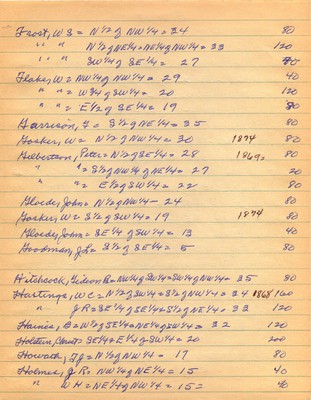 Frost, W S = N½ of NW¼ = 24 80
" " N½ of NE¼ = NE¼ of NW¼ = 23 120
" " SW¼ of SE¼ = 27 80
Flake, W = NW¼ of NW¼ = 29 40
" " = W¾ of SW¼ = 20 120
" " = E½ of SE¼ = 19 80
Garrison, = S½ of NE¼ = 35 80
Gosker, W = N½ of NW¼ = 30 1874 80
Gilbertson, Peter = N½ of SE¼ = 28 1869 80
" " = S½ of NW¼ of NE¼ = 27 20
" " = E½ of SW¼ = 22 80
Gloede, John = N½ of NW¼ - 24 80
Gosker, W = S½ of SW¼ = 19 1874 80
Gloede, John = SE¼ of SW¼ = 13 40
Goodman, J L = S½ of SE¼ = 5 80
Hitchcock, Gideon B = NW¼ of SW¼ = SW¼ of NW¼ = 35 80
Hartings, W C = N½ of SW¼ = S½ of NW¼ = 34 1868 160
" J R = SE¼ of SE¼ + S½ of NE¼ = 33 120
Haines, B = W½ of SE¼ = NE¼ of SW¼ = 32 120
Holstein, = SE¼ + E¼ of SW¼ = 20 200
Howath, F J = N½ of NW¼ = 17 80
Holmes, J R = NW¼ of NE¼ = 15 40
" W H = NE¼ of NW¼ = 15 40